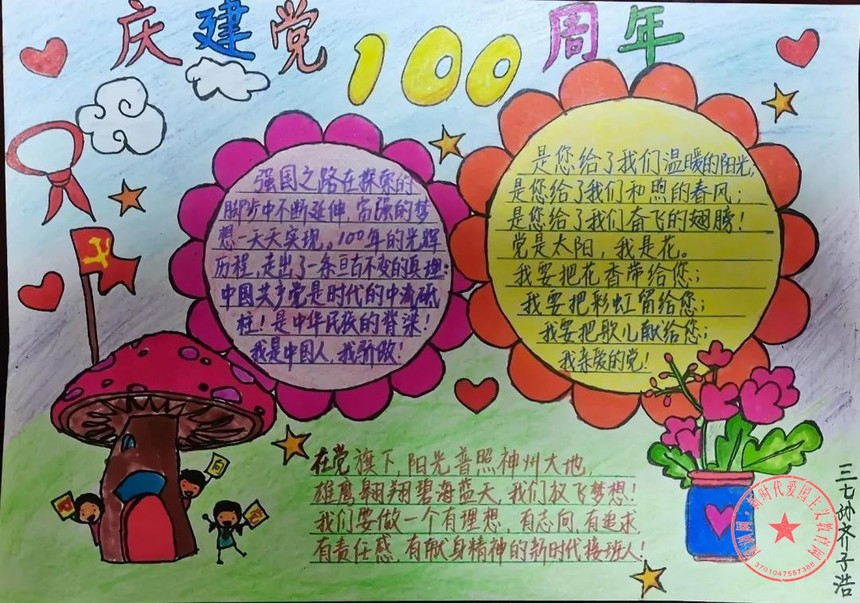 庆建党100周年
强国之路在探索的
脚步中不断延伸,富强的梦
想一天天实现。100年的光辉
历程,走出了一条亘古不变的真理:
中国共产党是时代的中流砥
柱!是中华民族的脊梁!
我是中国人,我骄傲!
是您给了我们温暖的阳光,
是您给了我们和煦的春风;
是您给了我们奋飞的翅膀!
党是太阳,我是花。
我要把花香带给您;
我要把彩虹留给您;
我要把歌儿献给您;
我亲爱的党!
在党旗下,阳光普照神州大地,
雄鹰翱翔碧海蓝天,我们放飞梦想!
我们要做一个有理想,有志向,有追求,
有责任感,有献身精神的新时代接班人!
向
齐子浩
新时代爱国主义教育网
3701047567388